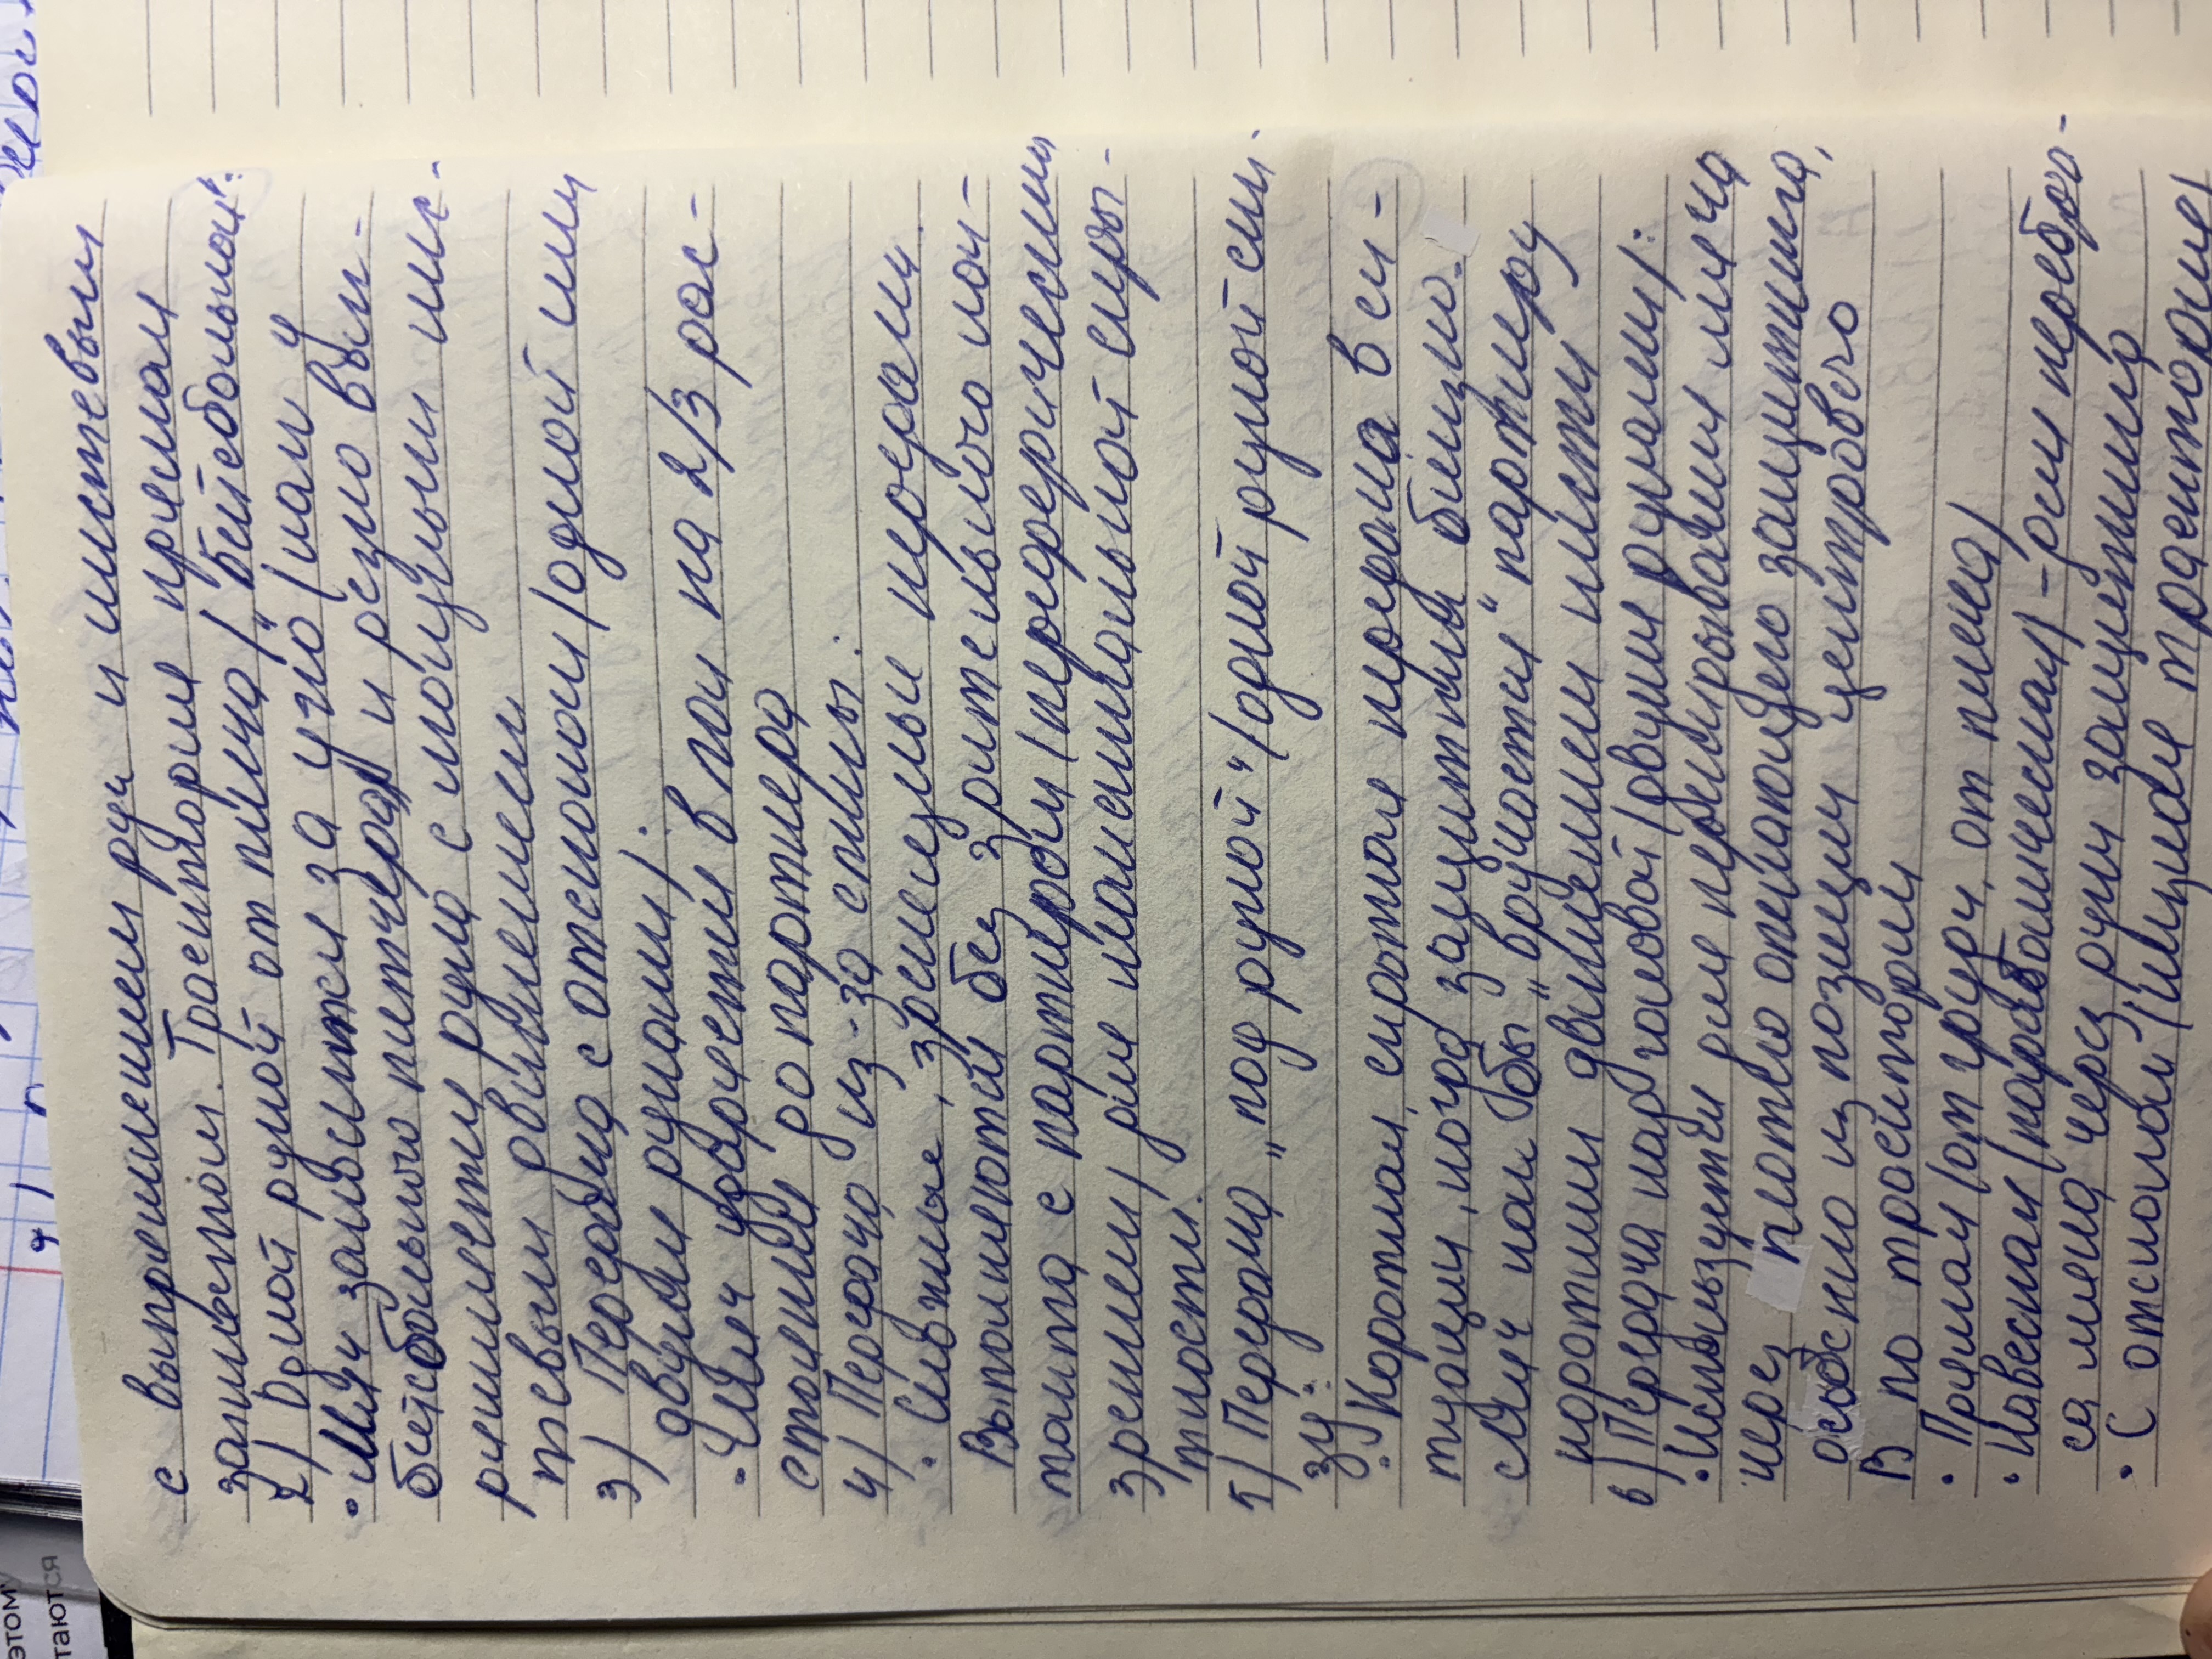 с выпрямлением рук и кистевым
захлёстом. Траектория прямая
2) Одной рукой от плеча / "бейсбольная":
• Мяч заносится за ухо (как у
бейсбольного питчера) и резко вып-
рямляется рука с мощным кис-
тевым движением
3) Передача с отскоком (одной или
двумя руками):
• Мяч ударяется в пол на 2/3 рас-
стояния до партнера
4) Передача из-за спины:
• Сложные, зрелищные передачи.
Выполняются без зрительного кон-
такта с партнёром (периферическим
зрением) для максимальной скры-
тности.
5) Передача "под рукой" (одной рукой сни-
зу:
• Короткая, скрытная передача в си-
туации, когда защитник близко.
Мяч как бы "вручается" партнеру
коротким движением кисти
6) Передача над головой (двумя руками):
• Используется для перебрасывания мяча
через плотно опекающего защитника,
особенно из позиции центрового
В по траектории
• Прямая (от груди, от плеча)
• Навесная (параболическая) - для перебро-
са мяча через руки защитника
• С отскоком (нижняя траектория)
этом
таются